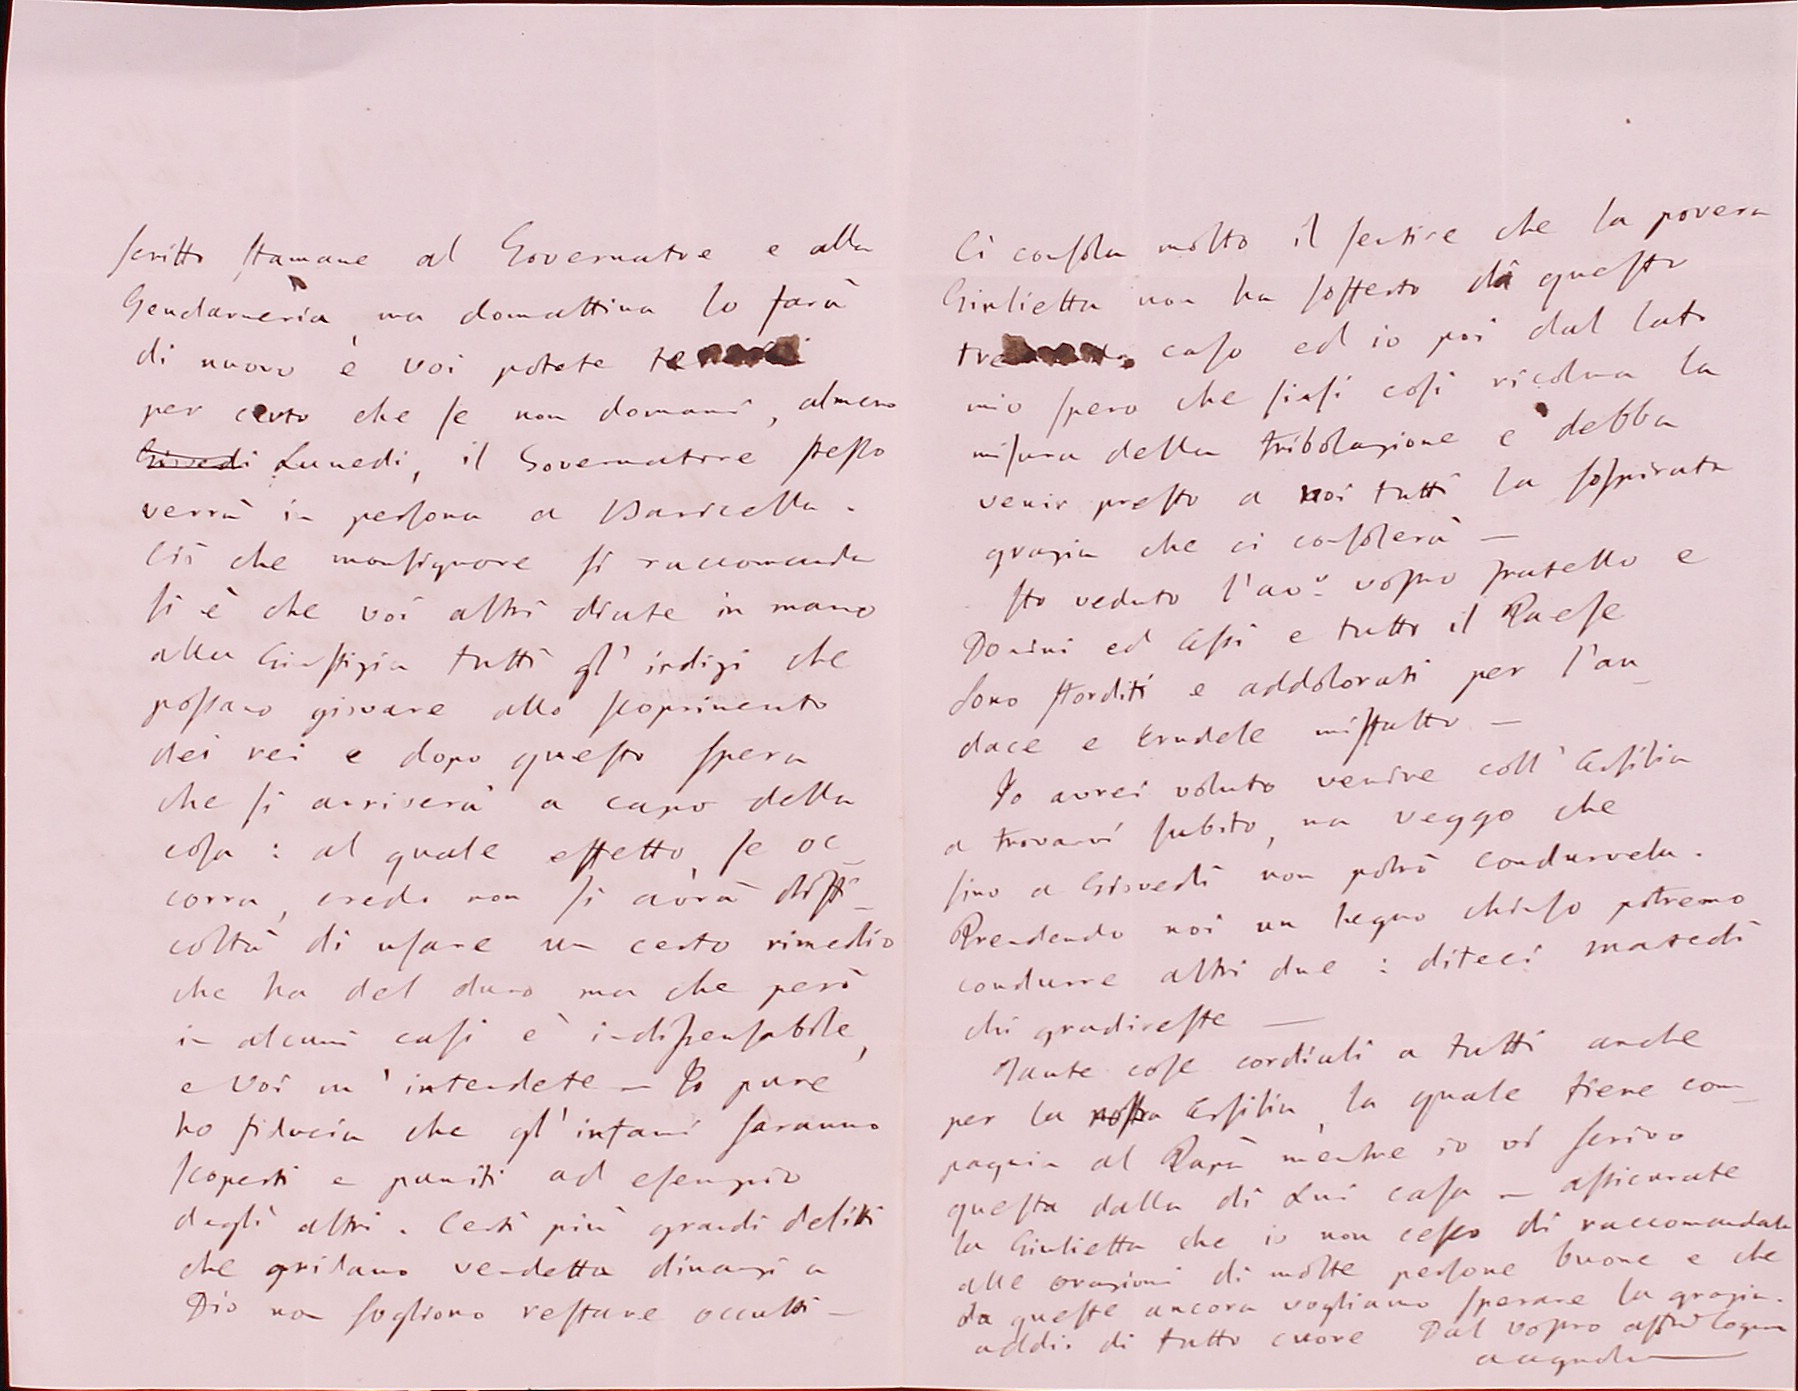 scritto stamane al Governatore e alla
Gendarmeria, ma domattina lo farà
di nuovo e voi potete
per certo che se non domani, almeno
Giovedi Lunedi, il Governatore stesso
verrà in persona a Baricella.
Ciò che monsignore si raccomanda
si è che voi altri diate in mano
alla Giustizia tutti gl'indizi che
possano giovare allo scoprimento
dei rei e dopo questo spera
che si arriverà a capo della
cosa: al quale effetto, se oc_
corra, crede non si avrà diffi_
coltà di usare un certo rimedio
che ha del duro ma che però
in alcuni casi è indispensabile,
e Voi m'intendete — Io pure
ho fiducia che gl'infami saranno
scoperti e puniti ad esempio
degli altri. Certi più grandi delitti
che gridano vendetta dinanzi a
Dio non sogliono restare occulti —
Ci consola molto il sentire che la povera
Giulietta non ha sofferto di questo
caso ed io poi dal lato
mio spero che siasi così ricolma la
misura della tribolazione e debba
venir presto a noi tutti la sospirata
grazia che ci consolerà —
Ho veduto l'avv. vostro fratello e
Donini ed Essi e tutto il Paese
sono storditi e addolorati per l'au_
dace e crudele misfatto —
Io avrei voluto venire coll'Ersilia
a trovarvi subito, ma veggo che
sino a Giovedì non potrò condurvela.
Prendendo noi un legno chiuso potremo
condurre altri due: diteci martedì
chi gradireste —
Tante cose cordiali a tutti anche
per la nostra Ersilia, la quale tiene com_
pagnia al Papà mentre io vi scrivo
questa dalla di Lui casa — assicurate
la Giulietta che io non cesso di raccomandarla
alle orazioni di molte persone buone e che
da queste ancora vogliamo sperare la grazia.
addio di tutto cuore Dal vostro